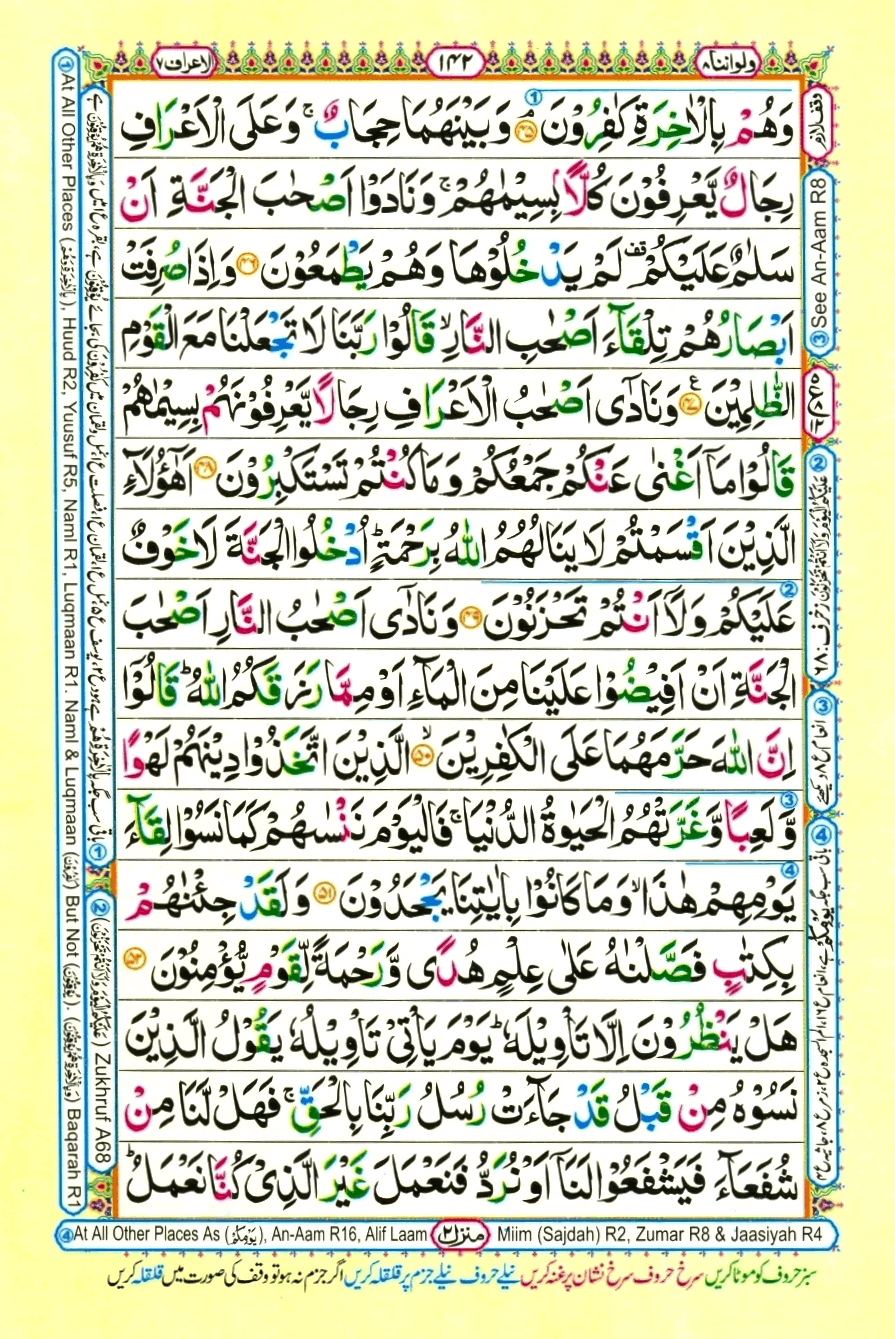 الاعراف ۷
۱۴۲
ولواننا ۸
وَهُمْ بِالْاٰخِرَةِ كٰفِرُوْنَ ۘ ۝۴۵ وَبَيْنَهُمَا حِجَابٌ ۚ وَعَلَى الْاَعْرَافِ
رِجَالٌ يَّعْرِفُوْنَ كُلًّاۢ بِسِيْمٰىهُمْ ۚ وَنَادَوْا اَصْحٰبَ الْجَنَّةِ اَنْ
سَلٰمٌ عَلَيْكُمْ ۫ لَمْ يَدْخُلُوْهَا وَهُمْ يَطْمَعُوْنَ ۝۴۶ وَاِذَا صُرِفَتْ
اَبْصَارُهُمْ تِلْقَآءَ اَصْحٰبِ النَّارِ ۙ قَالُوْا رَبَّنَا لَا تَجْعَلْنَا مَعَ الْقَوْمِ
الظّٰلِمِيْنَ ۝۴۷ وَنَادٰٓى اَصْحٰبُ الْاَعْرَافِ رِجَالًا يَّعْرِفُوْنَهُمْ بِسِيْمٰىهُمْ
قَالُوْا مَآ اَغْنٰى عَنْكُمْ جَمْعُكُمْ وَمَا كُنْتُمْ تَسْتَكْبِرُوْنَ ۝۴۸ اَهٰٓؤُلَآءِ
الَّذِيْنَ اَقْسَمْتُمْ لَا يَنَالُهُمُ اللّٰهُ بِرَحْمَةٍ ؕ اُدْخُلُوا الْجَنَّةَ لَا خَوْفٌ
عَلَيْكُمْ وَلَآ اَنْتُمْ تَحْزَنُوْنَ ۝۴۹ وَنَادٰٓى اَصْحٰبُ النَّارِ اَصْحٰبَ
الْجَنَّةِ اَنْ اَفِيْضُوْا عَلَيْنَا مِنَ الْمَآءِ اَوْ مِمَّا رَزَقَكُمُ اللّٰهُ ؕ قَالُوْٓا
اِنَّ اللّٰهَ حَرَّمَهُمَا عَلَى الْكٰفِرِيْنَ ۙ ۝۵۰ الَّذِيْنَ اتَّخَذُوْا دِيْنَهُمْ لَهْوًا
وَّلَعِبًا وَّغَرَّتْهُمُ الْحَيٰوةُ الدُّنْيَا ۚ فَالْيَوْمَ نَنْسٰىهُمْ كَمَا نَسُوْا لِقَآءَ
يَوْمِهِمْ هٰذَا ۙ وَمَا كَانُوْا بِاٰيٰتِنَا يَجْحَدُوْنَ ۝۵۱ وَلَقَدْ جِئْنٰهُمْ
بِكِتٰبٍ فَصَّلْنٰهُ عَلٰى عِلْمٍ هُدًى وَّرَحْمَةً لِّقَوْمٍ يُّؤْمِنُوْنَ ۝۵۲
هَلْ يَنْظُرُوْنَ اِلَّا تَاْوِيْلَهٗ ؕ يَوْمَ يَاْتِيْ تَاْوِيْلُهٗ يَقُوْلُ الَّذِيْنَ
نَسُوْهُ مِنْ قَبْلُ قَدْ جَآءَتْ رُسُلُ رَبِّنَا بِالْحَقِّ ۚ فَهَلْ لَّنَا مِنْ
شُفَعَآءَ فَيَشْفَعُوْا لَنَآ اَوْ نُرَدُّ فَنَعْمَلَ غَيْرَ الَّذِيْ كُنَّا نَعْمَلُ ؕ
وقف لازم
③ See An-Aam R8
② عَلَيْكُمُ الْيَوْمَ وَلَا اَنْتُمْ تَحْزَنُوْنَ زخرف: ۶۸
① At All Other Places (بِالْاٰخِرَةِ هُمْ), Huud R2, Yuusuf R5, Naml R1, Luqmaan R1. Naml & Luqmaan (كٰفِرُوْنَ) But Not (يُوْقِنُوْنَ). (وَبِالْاٰخِرَةِ هُمْ يُوْقِنُوْنَ) Baqarah R1
② (عَلَيْكُمُ الْيَوْمَ وَلَا اَنْتُمْ تَحْزَنُوْنَ) Zukhruf A68
④ At All Other Places As (يَوْمِكُمْ), An-Aam R16, Alif Laam
منزل ۲
Miim (Sajdah) R2, Zumar R8 & Jaasiyah R4
سبز حروف کو موٹا کریں سرخ حروف سرخ نشان پر غنہ کریں نیلے حروف نیلے جزم پر قلقلہ کریں اگر جزم نہ ہو تو وقف کی صورت میں قلقلہ کریں